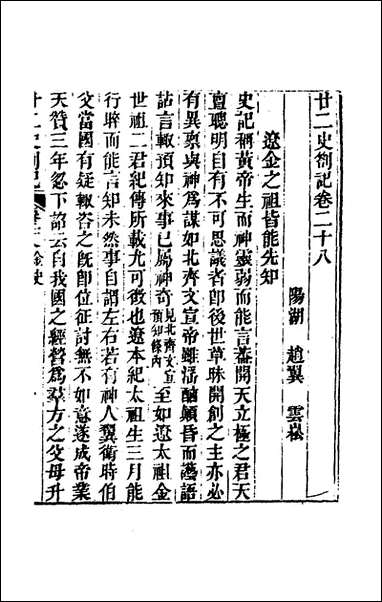 廿二史劄記卷二十八
陽湖 趙翼 雲崧
遼金之祖皆能先知
史記稱黃帝生而神靈弱而能言蓋開天立極之君天
亶聰明自有不可思議者卽後世草昧開創之主亦必
有異禀與神爲謀如北齊文宣帝雖湎酗顚昏而藝語
詁言輙預知來事已屬神奇見北齊文宣預知條內至如遼太祖金
世祖二君紀傳所載尤可徵也遼本紀太祖生三月能
行晬而能言知未然事自謂左右若有神人翼衞時伯
父當國有疑輙咨之旣卽位征討無不如意遂成帝業
天贊三年忽下詔云自我國之經營爲羣方之父母升
廿二史劄記